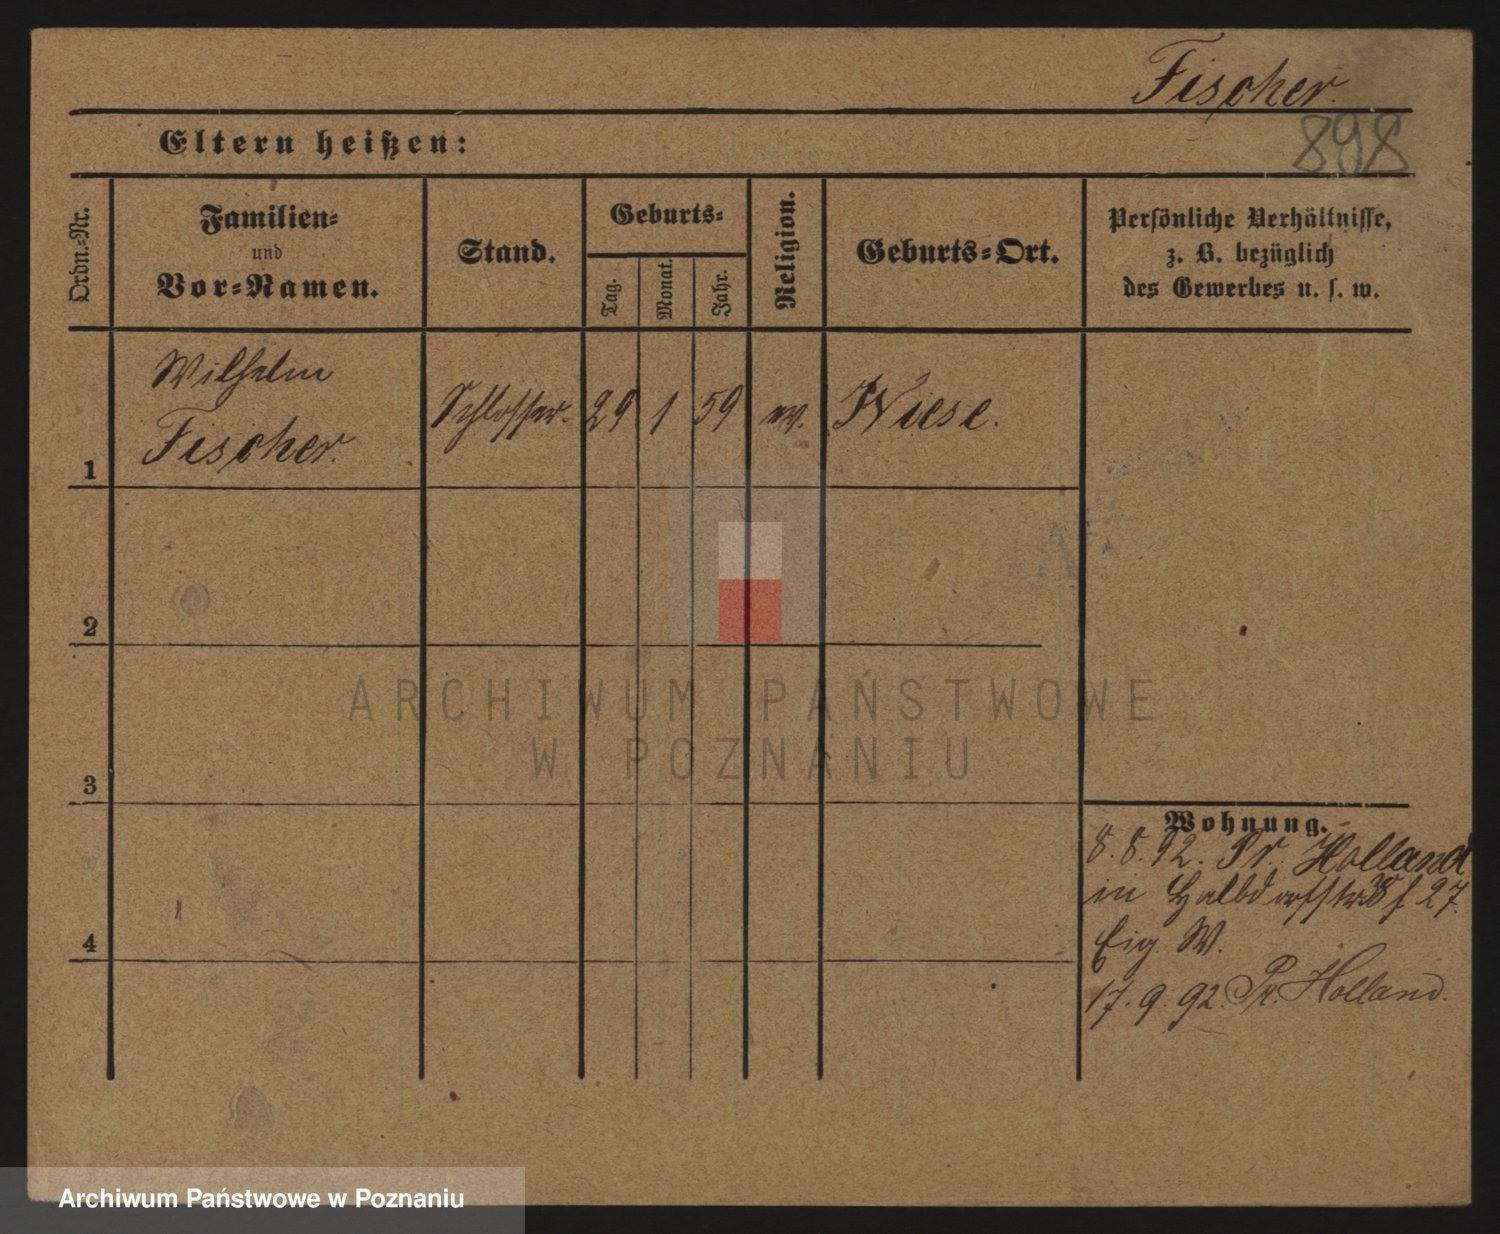 Fischer.
898
Eltern heißen:
Ordn.-Nr.
Familien-
und
Vor-Namen.
Stand.
Geburts-
Tag.
Monat.
Jahr.
Religion.
Geburts-Ort.
Persönliche Verhältnisse,
z. B. bezüglich
des Gewerbes u. s. w.
1
Wilhelm
Fischer.
Schlosser.
29
1
59
ev.
Wiese.
2
3
4
Wohnung.
8. 8. 92. Pr. Holland
in Halbdorfstr 38 27.
Eig. W.
17. 9. 92. Pr. Holland.
ARCHIWUM PAŃSTWOWE
W POZNANIU
Archiwum Państwowe w Poznaniu